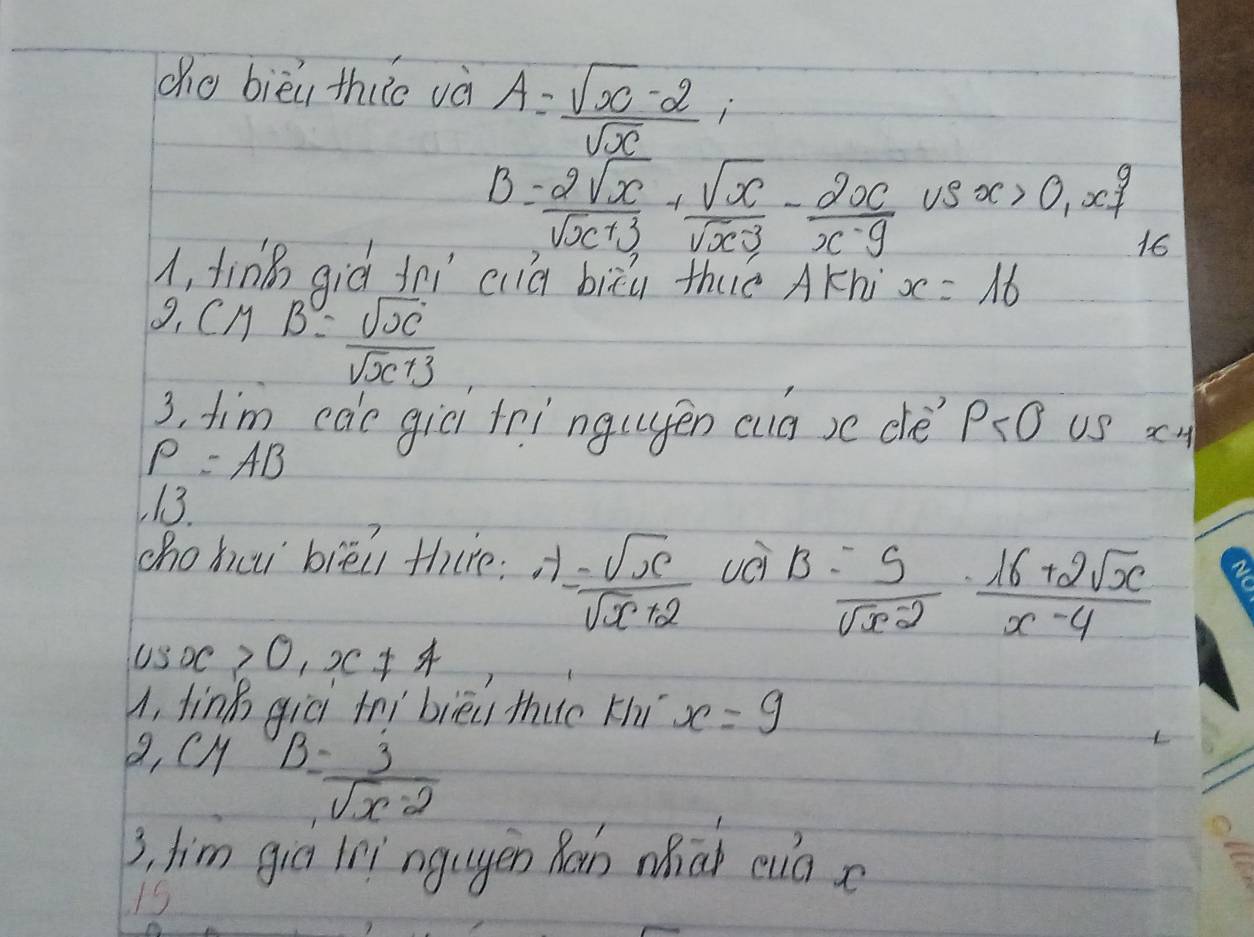 cho biểu thức và A = \frac{\sqrt{x} - 2}{\sqrt{x}} ;
B = \frac{2\sqrt{x}}{\sqrt{x}+3} + \frac{\sqrt{x}}{\sqrt{x}-3} - \frac{2x}{x-9} vs x > 0, x ≠ 9
16
1, tính giá trị của biểu thức A khi x = 16
2, CM B = \frac{\sqrt{x}}{\sqrt{x}+3}
3, tìm các giá trị nguyên của x để P < 0 vs
P = AB
13.
cho hai biểu thức: A = \frac{\sqrt{x}}{\sqrt{x}+2} và B = \frac{5}{\sqrt{x}-2} - \frac{16+2\sqrt{x}}{x-4}
vs x > 0, x ≠ 4
1, tính giá trị biểu thức khi x = 9
2, CM B = \frac{3}{\sqrt{x}-2}
3, tìm giá trị nguyên nhất của x
15